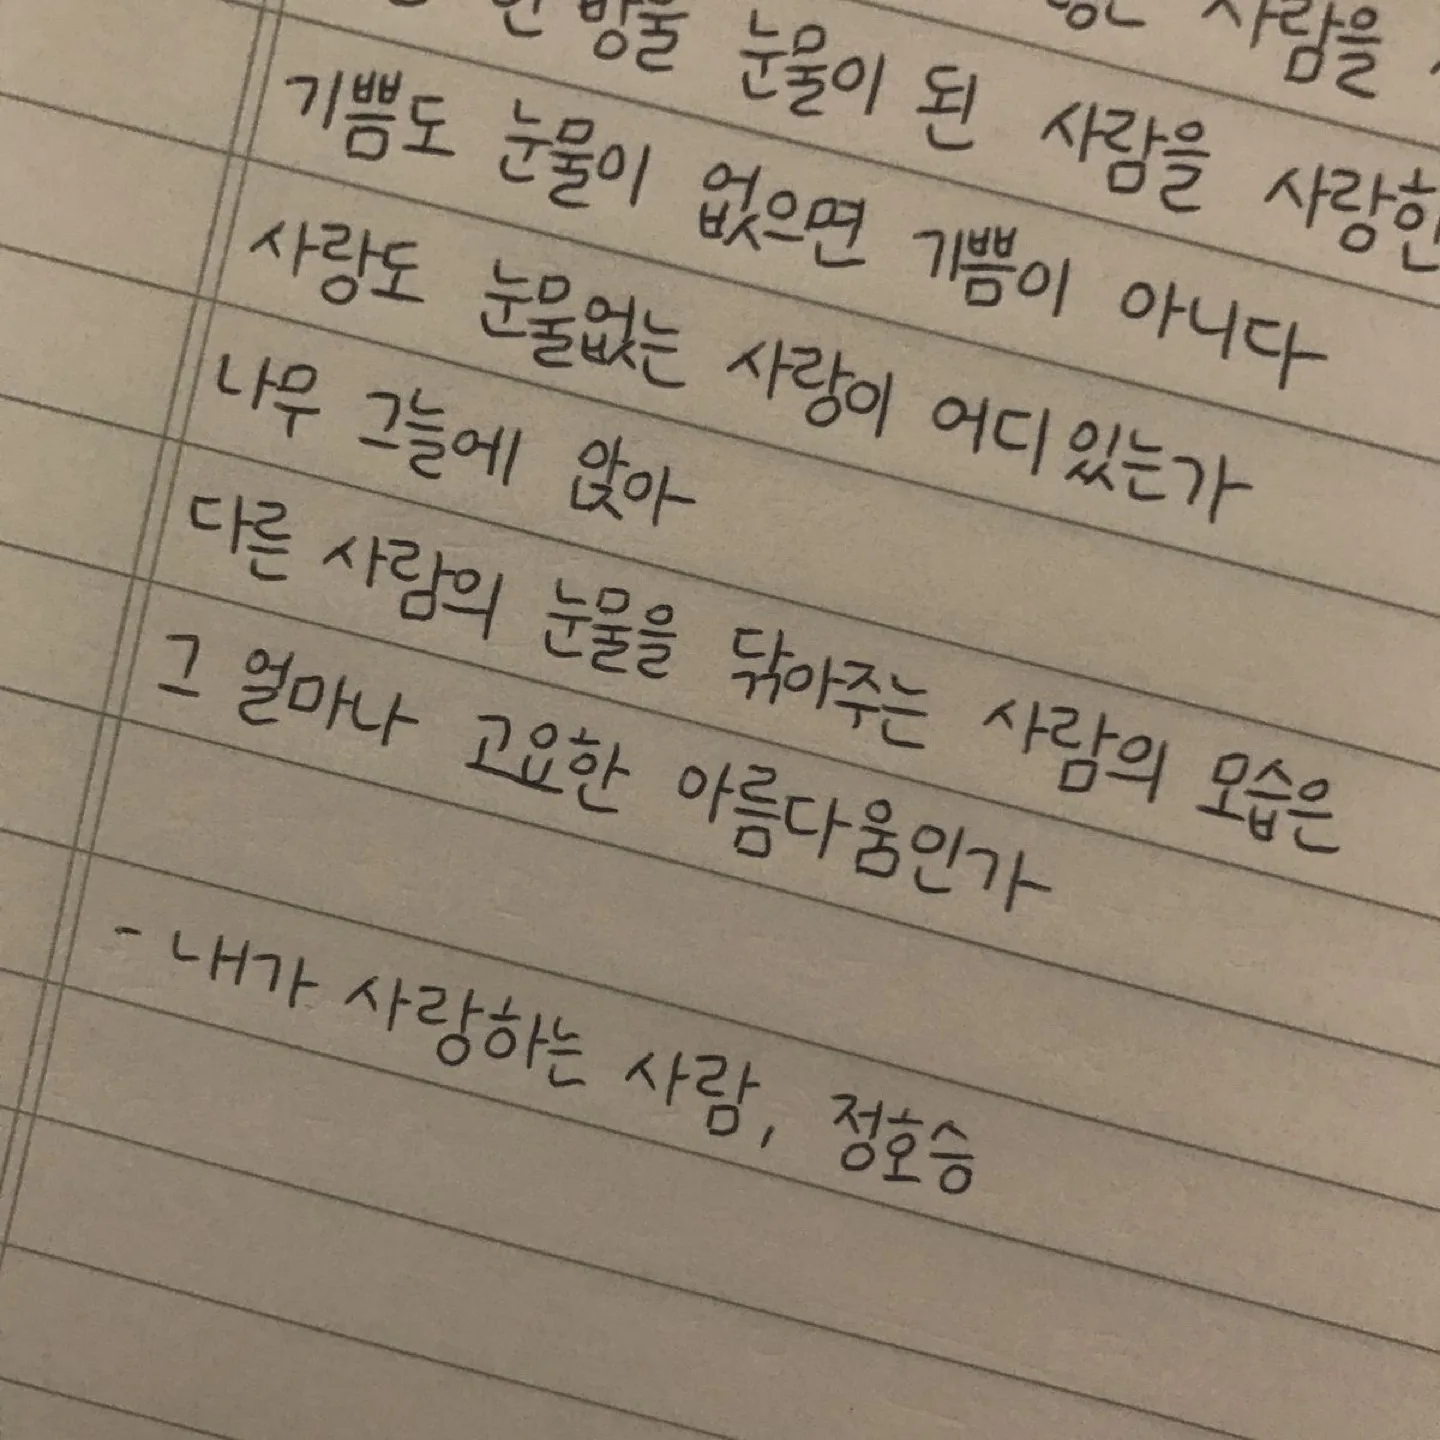 사람을
방울 눈물이 된 사람을
기쁨도 눈물이 없으면 기쁨이 아니다
사랑도 눈물없는 사랑이 어디있는가
나무 그늘에 앉아
다른 사람의 눈물을 닦아주는 사람의 모습은
그 얼마나 고요한 아름다움인가
- 내가 사랑하는 사람, 정호승